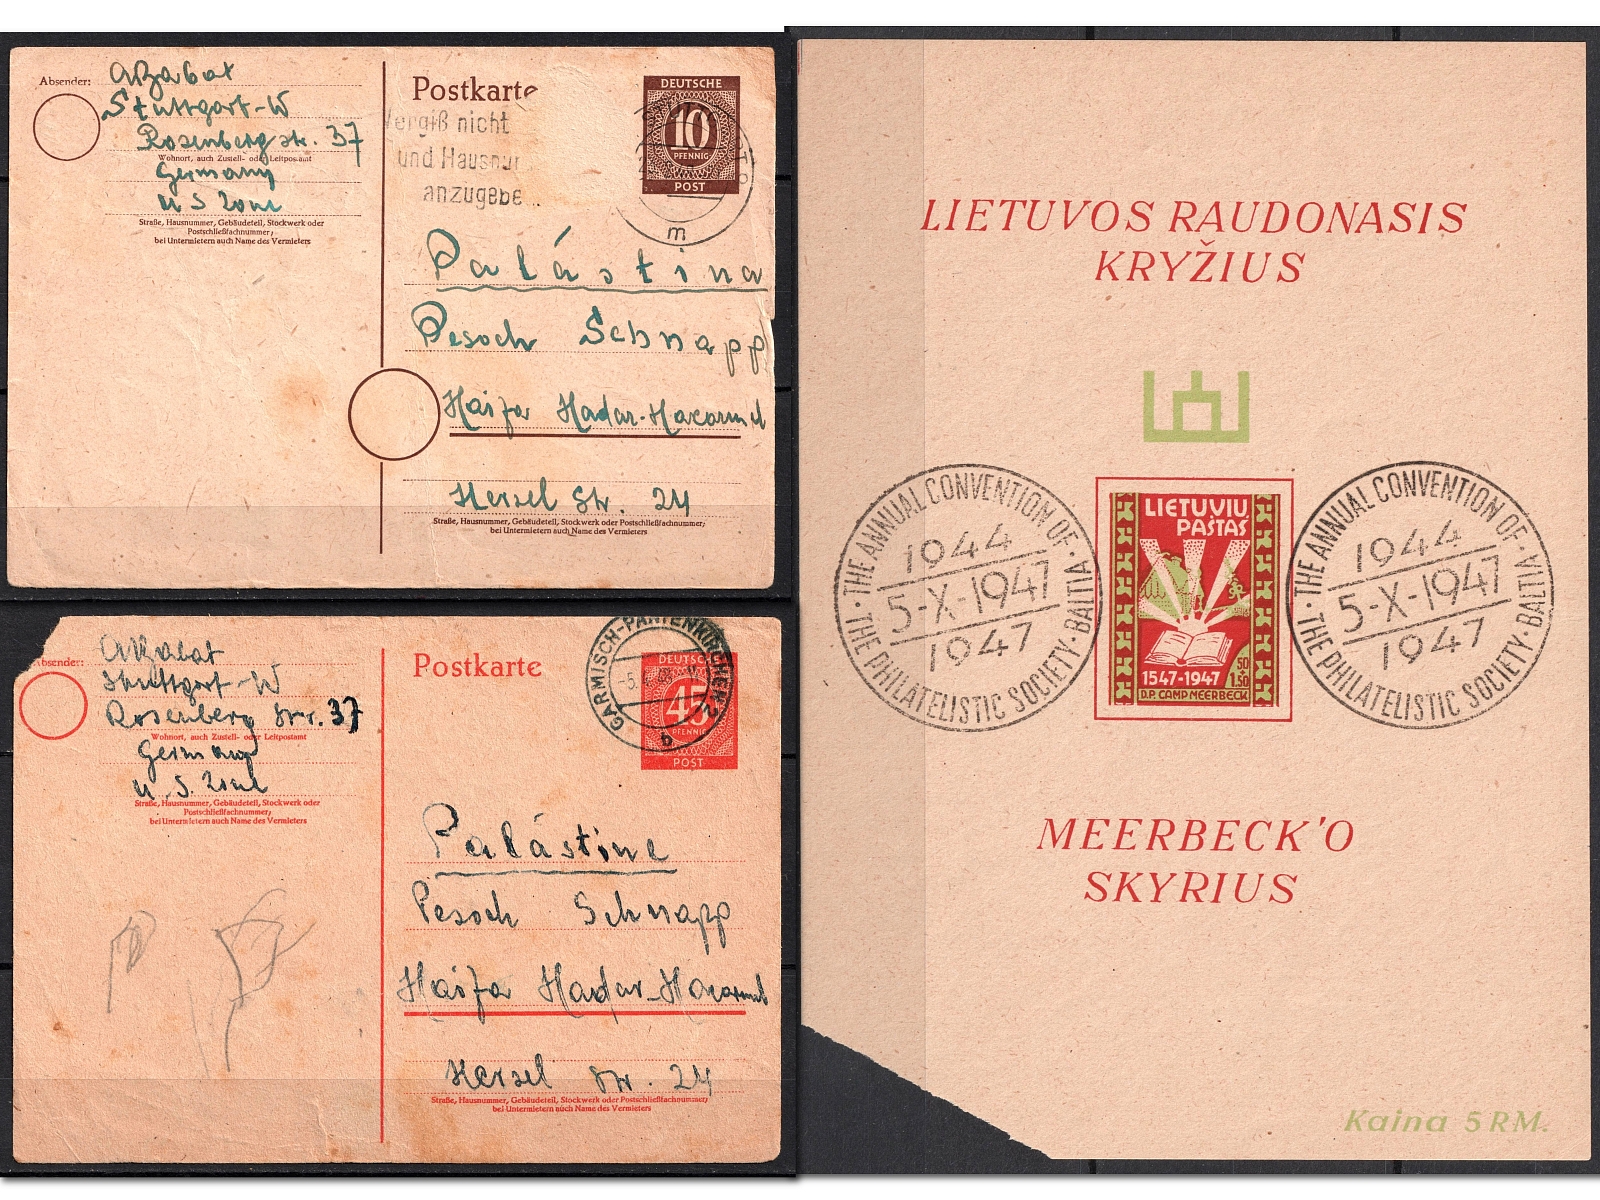 Absender:
Stuttgart-W
Rosenberg str. 37
Wohnort, auch Zustell- oder Leitpostamt
Germany
U S Zone
Straße, Hausnummer, Gebäudeteil, Stockwerk oder
Postschließfachnummer;
bei Untermietern auch Name des Vermieters
Postkarte
Vergiß nicht
und Hausnu
anzugebe
DEUTSCHE
10
PFENNIG
POST
m
Palästina
Pesach Schnapp
Haifa Hadar-Hacarmel
Herzel Str. 24
Straße, Hausnummer, Gebäudeteil, Stockwerk oder Postschließfachnummer;
bei Untermietern auch Name des Vermieters
Absender:
Stuttgart-W
Rosenberg Str. 37
Wohnort, auch Zustell- oder Leitpostamt
Germany
U.S. Zone
Straße, Hausnummer, Gebäudeteil, Stockwerk oder
Postschließfachnummer;
bei Untermietern auch Name des Vermieters
Postkarte
GARMISCH-PARTENKIRCHEN 2
b
DEUTSCHE
45
PFENNIG
POST
Palästine
Pesach Schnapp
Haifa Hadar-Hacarmel
Herzel Str. 24
Straße, Hausnummer, Gebäudeteil, Stockwerk oder Postschließfachnummer;
bei Untermietern auch Name des Vermieters
LIETUVOS RAUDONASIS
KRYŽIUS
THE ANNUAL CONVENTION OF
THE PHILATELISTIC SOCIETY · BALTIA
1944
5-X-1947
1947
LIETUVIŲ
PAŠTAS
50
1.50
1547-1947
D.P. CAMP MEERBECK
THE ANNUAL CONVENTION OF
THE PHILATELISTIC SOCIETY · BALTIA
1944
5-X-1947
1947
MEERBECK'O
SKYRIUS
Kaina 5 RM.